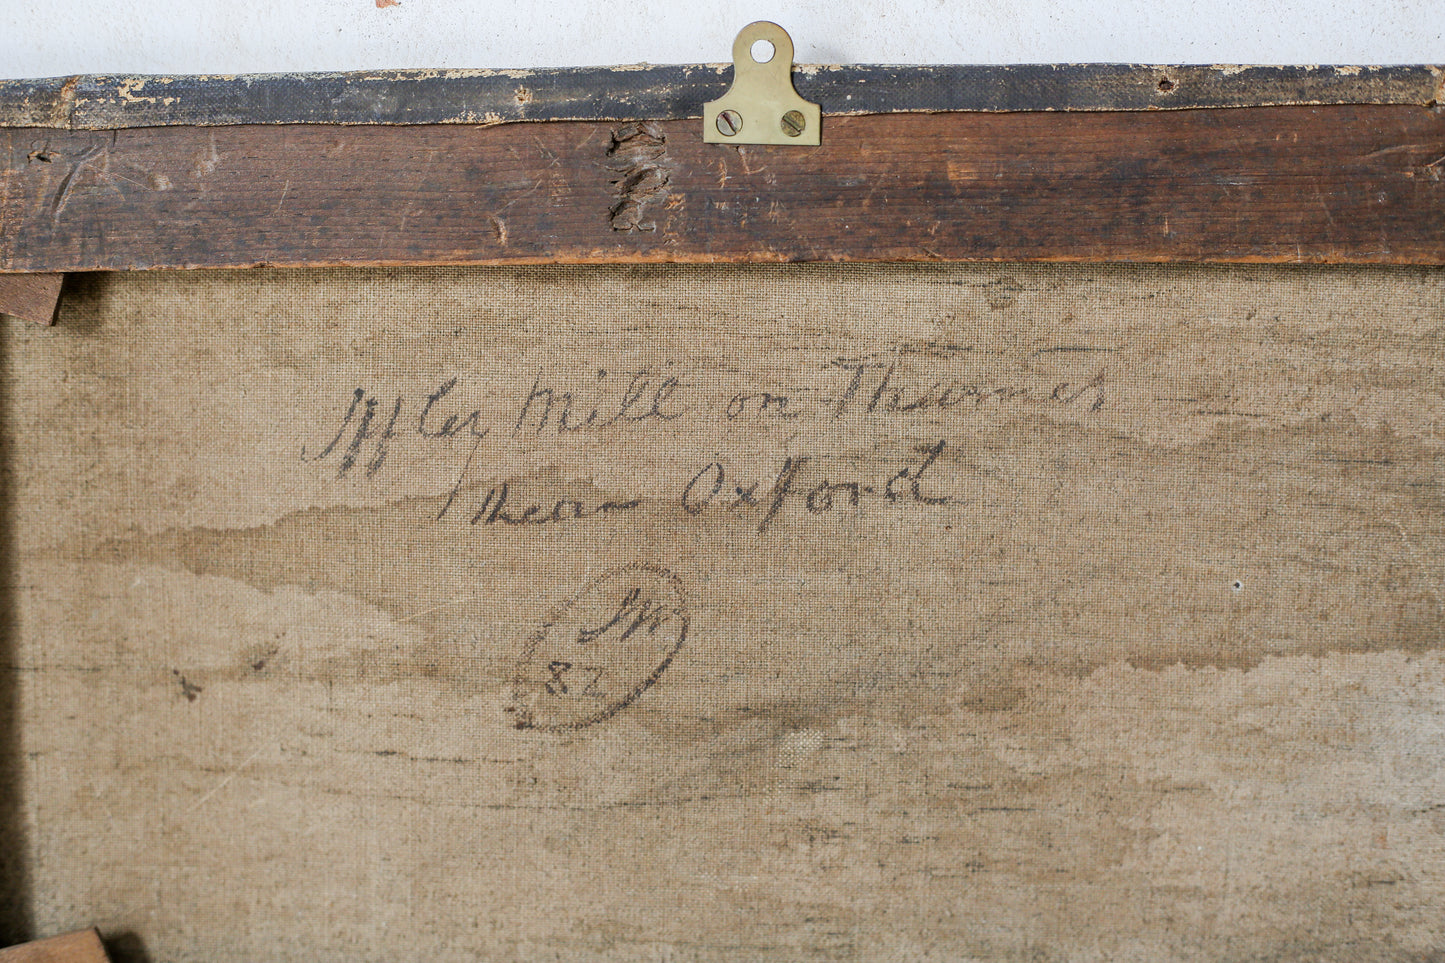 Iffley Mill on Thames
near Oxford
JW
82